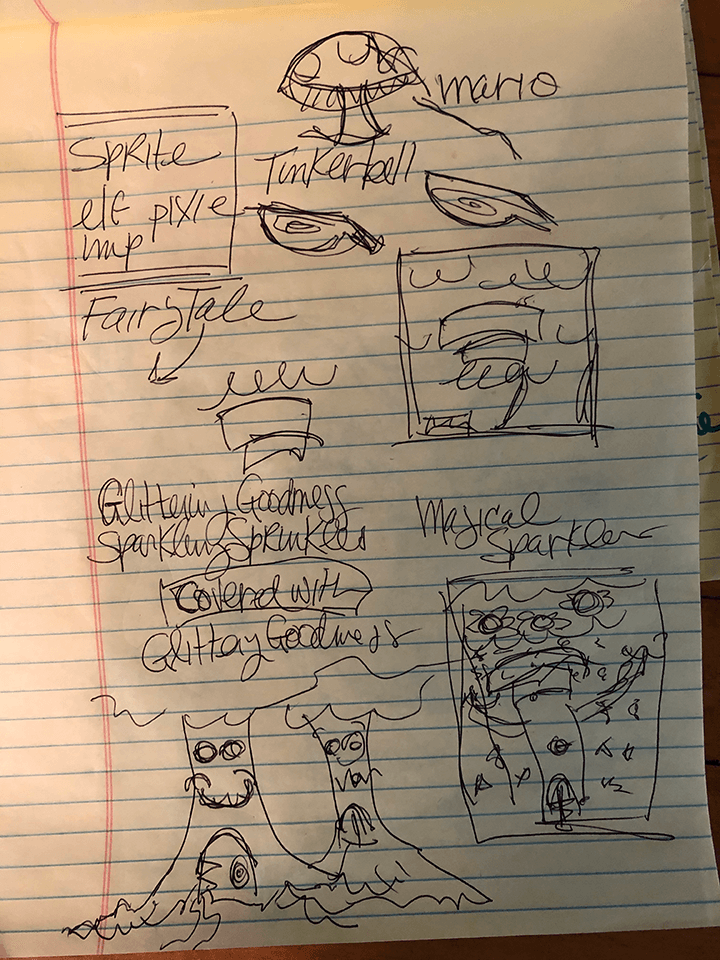 mario
Sprite
Tinkerbell
elf pixie
imp
FairyTale
Glittering Goodness
Sparkling Sprinkles
Magical
Sparkler
Covered with
Glittery Goodness